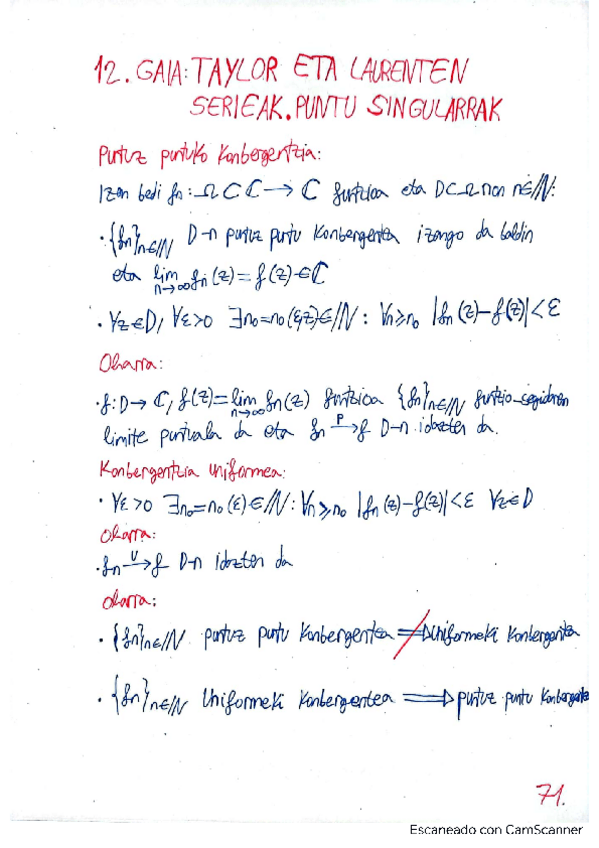 12. GAIA: TAYLOR ETA LAURENTEN
SERIEAK. PUNTU SINGULARRAK
Puntuz puntuko Konbergentzia:
Izan bedi fn: Ω ⊂ ℂ → ℂ funtzioa eta D ⊂ Ω non n∈ℕ:
· {fn}n∈ℕ D-n puntuz puntu konbergentea izango da baldin
eta lim n→∞ fn(z) = f(z) ∈ ℂ
· ∀z∈D, ∀ε>0 ∃n₀=n₀(ε,z)∈ℕ: ∀n≥n₀ |fn(z)-f(z)|<ε
Oharra:
· f: D → ℂ, f(z) = lim n→∞ fn(z) funtzioa {fn}n∈ℕ funtzio-segidaren
limite puntuala da eta fn →ᵖ f D-n idazten da.
Konbergentzia uniformea:
· ∀ε>0 ∃n₀=n₀(ε)∈ℕ: ∀n≥n₀ |fn(z)-f(z)|<ε ∀z∈D
Oharra:
· fn →ᵁ f D-n idazten da
Oharra:
· {fn}n∈ℕ puntuz puntu konbergentea ⇏ Uniformeki konbergentea
· {fn}n∈ℕ Uniformeki konbergentea ⇒ puntuz puntu konbergentea
71.
Escaneado con CamScanner